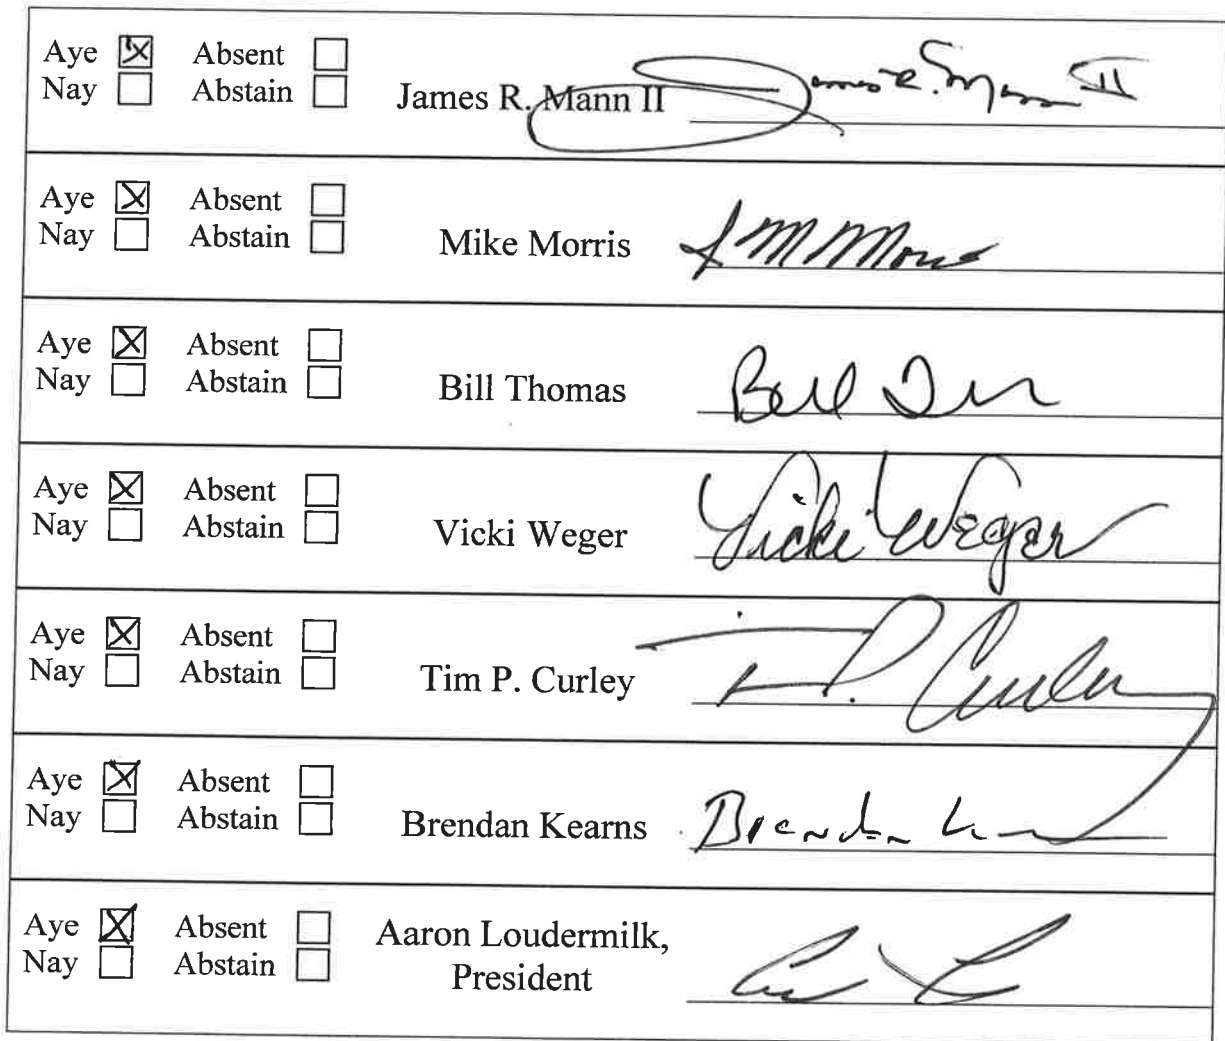 Aye ☒ Absent ☐
Nay ☐ Abstain ☐
James R. Mann II James R. Mann II
Aye ☒ Absent ☐
Nay ☐ Abstain ☐
Mike Morris
Aye ☒ Absent ☐
Nay ☐ Abstain ☐
Bill Thomas Bill
Aye ☒ Absent ☐
Nay ☐ Abstain ☐
Vicki Weger Vicki Weger
Aye ☒ Absent ☐
Nay ☐ Abstain ☐
Tim P. Curley T. P. Curley
Aye ☒ Absent ☐
Nay ☐ Abstain ☐
Brendan Kearns Brendan
Aye ☒ Absent ☐
Nay ☐ Abstain ☐
Aaron Loudermilk,
President